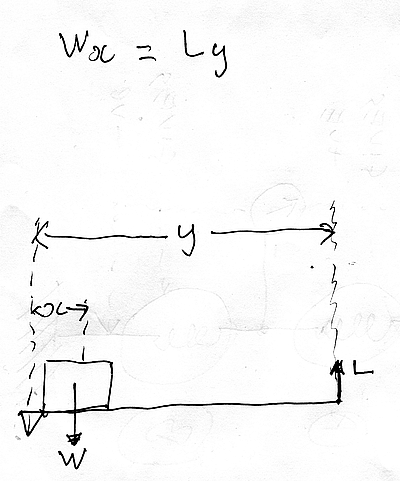 Wx = Ly
y
x
L
W